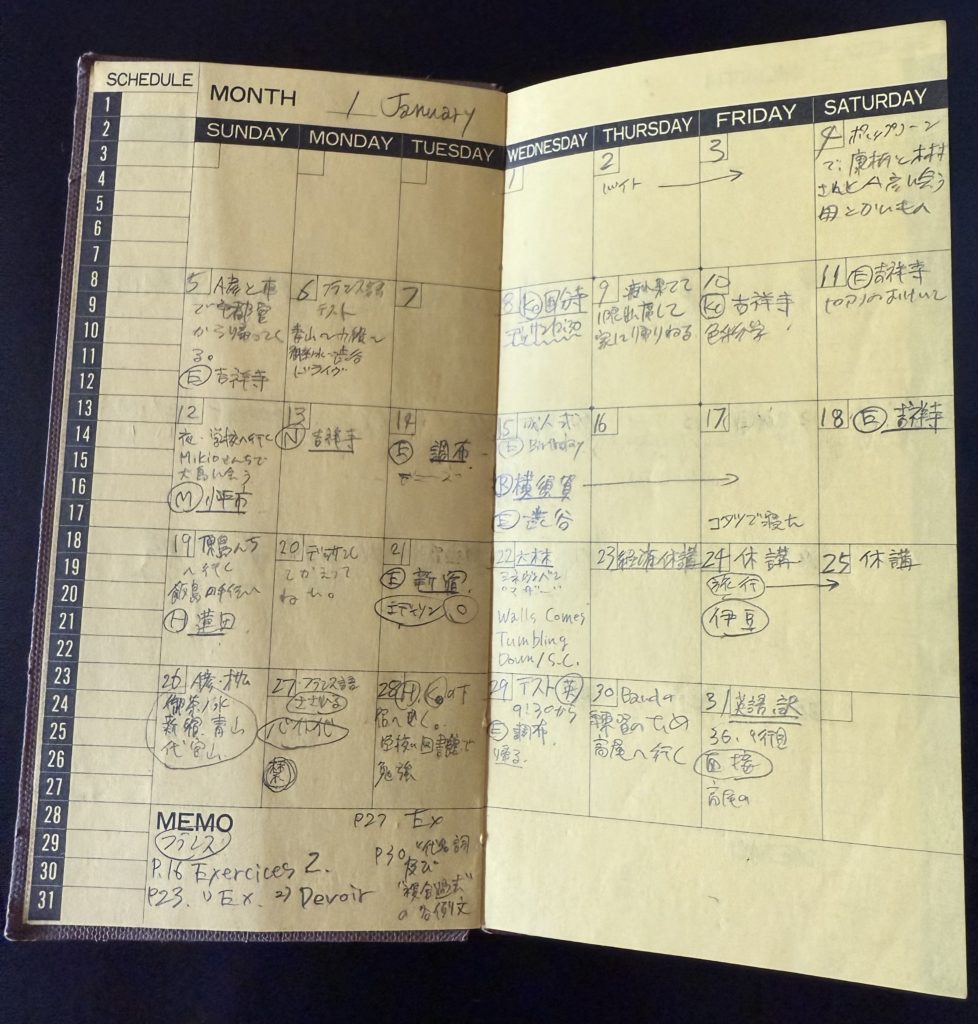 SCHEDULE
MONTH 1 January
SUNDAY MONDAY TUESDAY WEDNESDAY THURSDAY FRIDAY SATURDAY
1
2
3
4
5
6
7
8
9
10
11
12
13
14
15
16
17
18
19
20
21
22
23
24
25
26
27
28
29
30
31
1
2
バイト →
3
4 ポップリーン
で、
と木村
さんと A彦に会う
5 A彦と車
で宇都宮
から帰ってく
る。
E 吉祥寺
6 フランス語
テスト
青山〜
〜渋谷
ドライヴ
7
8 Ko 国分寺
デッサン
9
家に帰りねる
10
Ko 吉祥寺
色彩学
11 E 吉祥寺
ピアノのおけいこ
12
夜・学校へ行く
Mikioさんちで
大島に会う
M 小平市
13
N 吉祥寺
14
E 調布
15 成人式
E Birthday
B 横須賀 →
E 渋谷
16
17
コタツで寝た
18 E 吉祥寺
19 飯島んち
へ行く
飯島の手伝い
H 蓮田
20 デッサン
てかえって
ねた。
21
E 新宿
O
22 大林
Walls Comes
Tumbling
Down/S.C.
23 経済休講
24 休講
旅行 →
伊豆
25 休講
26 A彦・松
御茶ノ水
新宿・青山
代官山
27 フランス語
28 H, Koの下
宿へ行く。
学校の図書館で
勉強
29 テスト 英
9:30から
E 調布
帰る
30 Bandの
練習のため
高尾へ行く
31 英語訳
36, 9行目
面接
高尾の
MEMO
フランス
P.16 Exercices 2.
P23. 1) Ex. 2) Devoir
P27. Ex
P30, "代名詞
及び
"複合過去"
の各例文